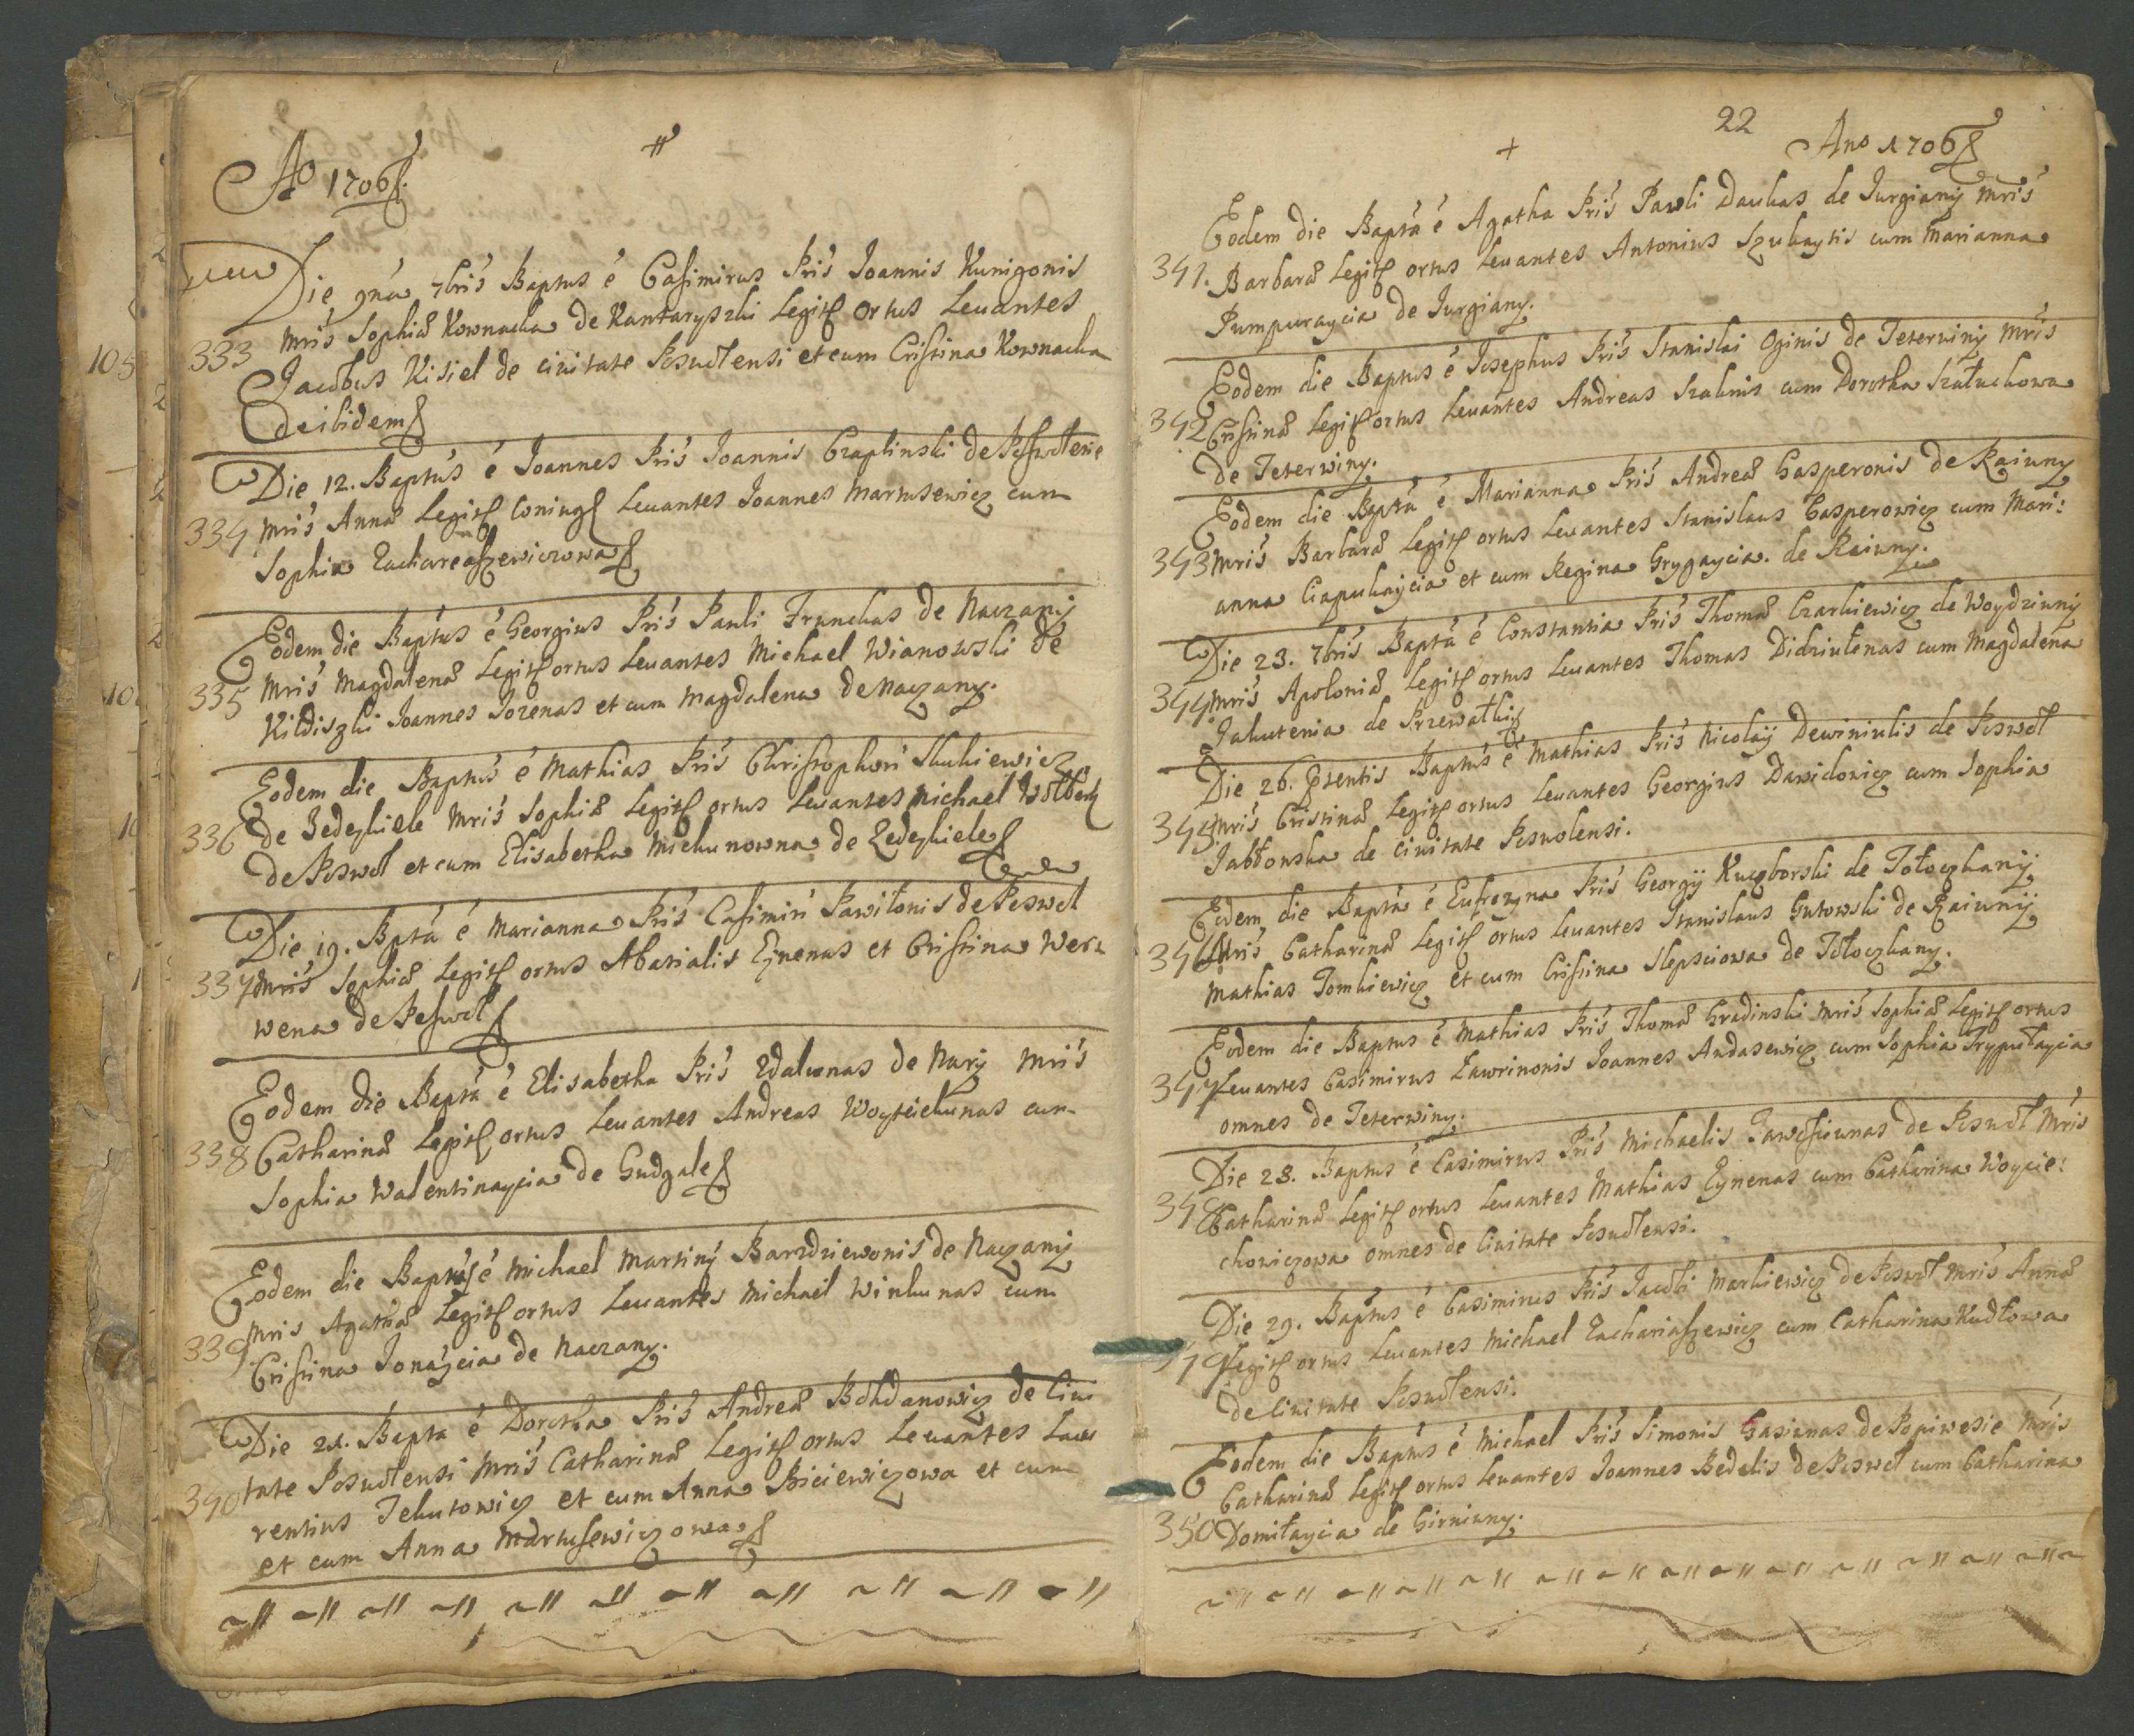 Ao 1706
Die 9na 7bris Baptus é Casimirus Pris Joannis Kunigonis
333 Mris Sophiæ Kownacka de Kantaryszki Legit ortus Levantes
Jacobus Kisiel de civitate Posvolensi et cum Cristina Kownacka
de ibidem
Die 12. Baptus é Joannes Pris Joannis Czaplinski de
334 Mris Annæ Legit Coniug Levantes Joannes Martusewicz cum
Sophia
Eodem die Baptus é Georgius Pris Pauli Trunckas de Naczany
335 Mris Magdalenæ Legit ortus Levantes Michael Wianowski de
Kildiszki Joannes Jozenas et cum Magdalena de Naczany.
Eodem die Baptus é Mathias Pris Christophori
336 de Zedeykiele Mris Sophiæ Legit ortus Levantes Michael
de Poswol et cum Elisabetha Mickunowna de Zedeykiele
Die 19. Bpta é Marianna Pris Casimiri Pawiłonis de Poswol
337 Mris Sophiæ Legit ortus Abatialis Eynenas et Cristina Wer
wena de Poswol
Eodem Die Bapta é Elisabetha Pris de Nary Mris
338 Catharinæ Legit ortus Levantes Andreas Woyteckunas cum
Sophia Walentinaycia de Gudgale
Eodem die Baptus é Michael Martiny Barzdziewonis de Naczany
339 Mris Agathæ Legit ortus Levantes Michael Winkunas cum
Cristina Jonaycia de Naczany.
Die 21. Bapta é Dorotha Pris Andreæ Bohdanowicz de Civi
340 tate Posvolensi Mris Catharinæ Legit ortus Levantes Lau
rentius Jekutowicz et cum Anna et cum
et cum Anna Martusewiczowa
22
Ano 1706
Eodem die Bapta é Agatha Pris Pawli Daukas de Jurgiany Mris
341. Barbaræ Legit ortus Levantes Antonius Szukaytis cum Marianna
Pumpuraycia de Jurgiany.
Eodem die Baptus é Josephus Pris Stanislai Oginis de Teterwiny Mris
342 Cristinæ Legit ortus Levantes Andreas Szaknis cum Dorotha Szałuchowa
de Teterwiny.
Eodem die Bapta é Marianna Pris Andreæ Gasperonis de Raiuny
343 Mris Barbaræ Legit ortus Levantes Stanislaus Gasperowicz cum Mari:
anna Ciapukaycia et cum Regina Grygaycia. de Raiuny.
Die 23. 7bris Bapta é Constantia Pris Thomæ Czarkiewicz de Woydziuny
344 Mris Apoloniæ Legit ortus Levantes Thomas Didziułenas cum Magdalena
Jakutenia de Przewałki
Die 26. Psentis Baptus é Mathias Pris Nicolay Dewiniulis de Poswol
345 Mris Cristinæ Legit ortus Levantes Georgius Dawidowicz cum Sophia
Jabłonska de Civitate Posvolensi.
Eodem die Bapta é Eufrozyna Pris Georgij Kuczborski de Tołoczkany
346 Mris Catharinæ Legit ortus Levantes Stanislaus Gutowski de Raiuny
Mathias Tomkiewicz et cum Cristina Slepsciowa de Tołoczkany.
Eodem die Baptus é Mathias Pris Thomæ Gradinski Mris Sophiæ Legit ortus
347 Levantes Casimirus Lawrinonis Joannes Andasewicz cum Sophia Tryputaycia
omnes de Teterwiny.
Die 28. Baptus é Casimirus Pris Michaelis de Poswol Mris
348 Catharinæ Legit ortus Levantes Mathias Eynenas cum Catharina Woycie:
chowiczowa omnes de Civitate Posvolensi.
Die 29. Baptus é Casimirus Pris Jacobi Markiewicz de Poswol Mris Annæ
349 Legit ortus Levantes Michael Zachariaszewicz cum Catharina Kudłowa
de Civitate Posvolensi.
Eodem die Baptus é Michael Pris Simonis Gasiunas de Popiwesie Mris
Catharinæ Legit ortus Levantes Joannes Bedalis de Poswol cum Catharina
350 Domiłaycia de Girniuny.